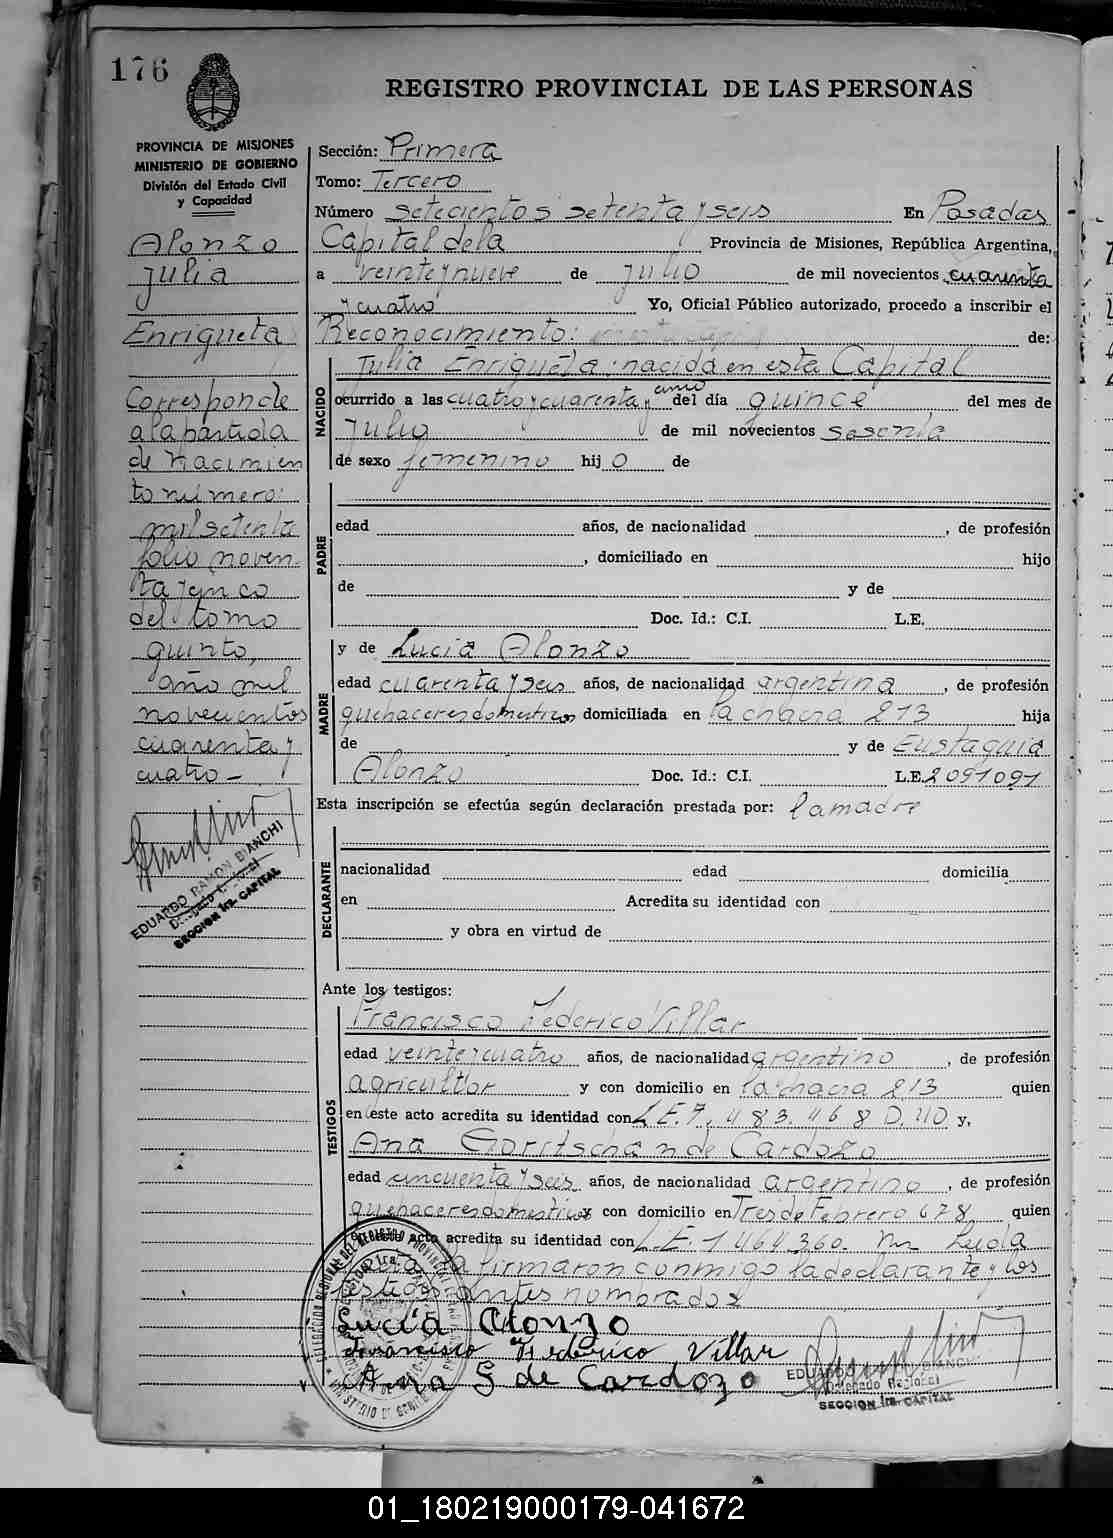 176
REGISTRO PROVINCIAL DE LAS PERSONAS
PROVINCIA DE MISIONES
MINISTERIO DE GOBIERNO
División del Estado Civil
y Capacidad
Alonzo
Julia
Enriqueta
Corresponde
a la partida
de Nacimien
to número:
mil setenta
folio noven-
ta y cinco
del tomo
quinto,
año mil
novecientos
cuarenta y
cuatro -
EDUARDO RAMON BIANCHI
SECCION 1ra. CAPITAL
Sección: Primera
Tomo: Tercero
Número setecientos setenta y seis En Posadas
Capital de la Provincia de Misiones, República Argentina,
a veinte y nueve de Julio de mil novecientos cuarenta
y cuatro Yo, Oficial Público autorizado, procedo a inscribir el
Reconocimiento: de:
NACIDO
Julia Enriqueta: nacida en esta Capital
ocurrido a las cuatro y cuarenta y cinco del día quince, del mes de
Julio de mil novecientos sesenta
de sexo femenino hij o de
PADRE
edad años, de nacionalidad , de profesión
, domiciliado en hijo
de y de
Doc. Id.: C.I. L.E.
MADRE
y de Lucia Alonzo
edad cuarenta y seis años, de nacionalidad argentina, de profesión
quehaceres domesticos domiciliada en la chacra 213 hija
de y de Eustaquia
Alonzo Doc. Id.: C.I. L.E. 2091091
Esta inscripción se efectúa según declaración prestada por: la madre
DECLARANTE
nacionalidad edad domicilia
en Acredita su identidad con
y obra en virtud de
Ante los testigos:
TESTIGOS
Francisco Federico Villar
edad veinte y cuatro años, de nacionalidad argentino, de profesión
agricultor y con domicilio en la chacra 213 quien
en este acto acredita su identidad con L.E. 7.483.468 D.40 y,
Ana Goritschan de Cardozo
edad cincuenta y seis años, de nacionalidad argentino, de profesión
quehaceres domesticos y con domicilio en Tres de Febrero 678 quien
en este acto acredita su identidad con L.E. 1464.360. Leida
la firmaron conmigo la declarante y los
testigos antes nombrados
Lucia Alonzo
Francisco Federico Villar
Ana G de Cardozo
EDUARDO BIANCHI
Delegado Regional
SECCION 1ra. CAPITAL
01_180219000179-041672